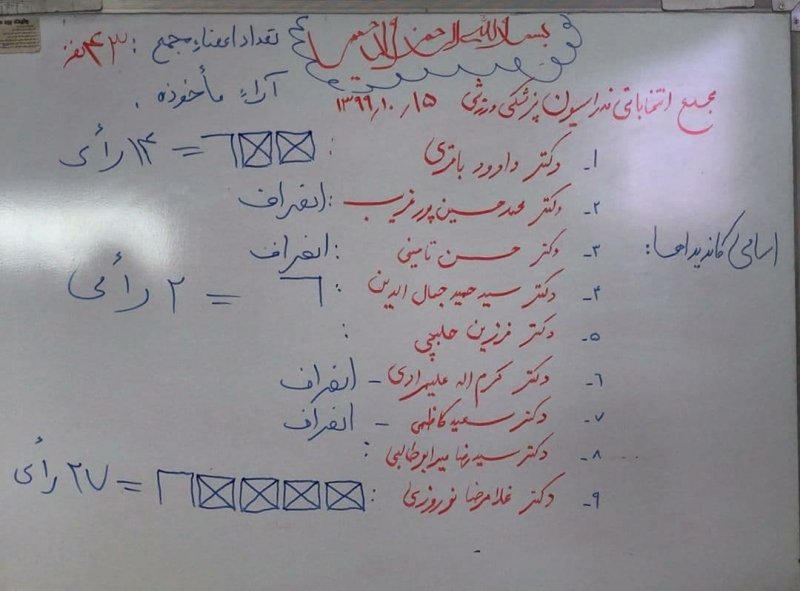 بسم الله الرحمن الرحیم
تعداد اعضاء مجمع : ۴۳ نفر
مجمع انتخاباتی فدراسیون پزشکی ورزشی ۱۳۹۹٫۱۰٫۱۵
آراء مأخوذه .
اسامی کاندیداها :
۱ـ دکتر داورد باقری : = ۱۴ رأی
۲ـ دکتر محمدحسین پورغریب : انصراف
۳ـ دکتر حسن تامینی : انصراف
۴ـ دکتر سید حمید جمال الدین : = ۲ رأی
۵ـ دکتر فرزین حلبچی :
۶ـ دکتر کرم اله علیمرادی - انصراف
۷ـ دکتر سعید کاظمی - انصراف
۸ـ دکتر سیدرضا میرابوطالبی :
۹ـ دکتر غلامرضا نوروزی : = ۲۷ رأی